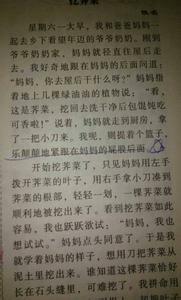 挖荠菜
星期六一大早,我和爸爸妈妈一
起去乡下看望年迈的爷爷奶奶。刚到
爷爷奶奶家,妈妈就径直往屋后走
去。我好奇地跟在妈妈的后面问道:
“妈妈,你去屋后干什么呀?”妈妈指
着地上几棵绿油油的植物说:“看,
这是荠菜,挖回去洗干净后包馄饨吃
可香啦!”说着,妈妈就走到厨房,拿
了一把小刀来。我呢,则提着个篮子,
乐颠颠地紧跟在妈妈的屁股后面。
开始挖荠菜了,只见妈妈用左手
拨开荠菜的叶子,用右手拿小刀凑到
荠菜的根部,轻轻一划,一棵荠菜就
顺利地被挖出来了。看到挖荠菜如此
容易,我也跃跃欲试:“妈妈,我也
想试试。”妈妈点头同意了。于是我
就学着妈妈的样子,想用刀把荠菜从
泥土里挖出来。谁知道这棵荠菜恰好
长在石头缝里,可难挖了。我拼命用